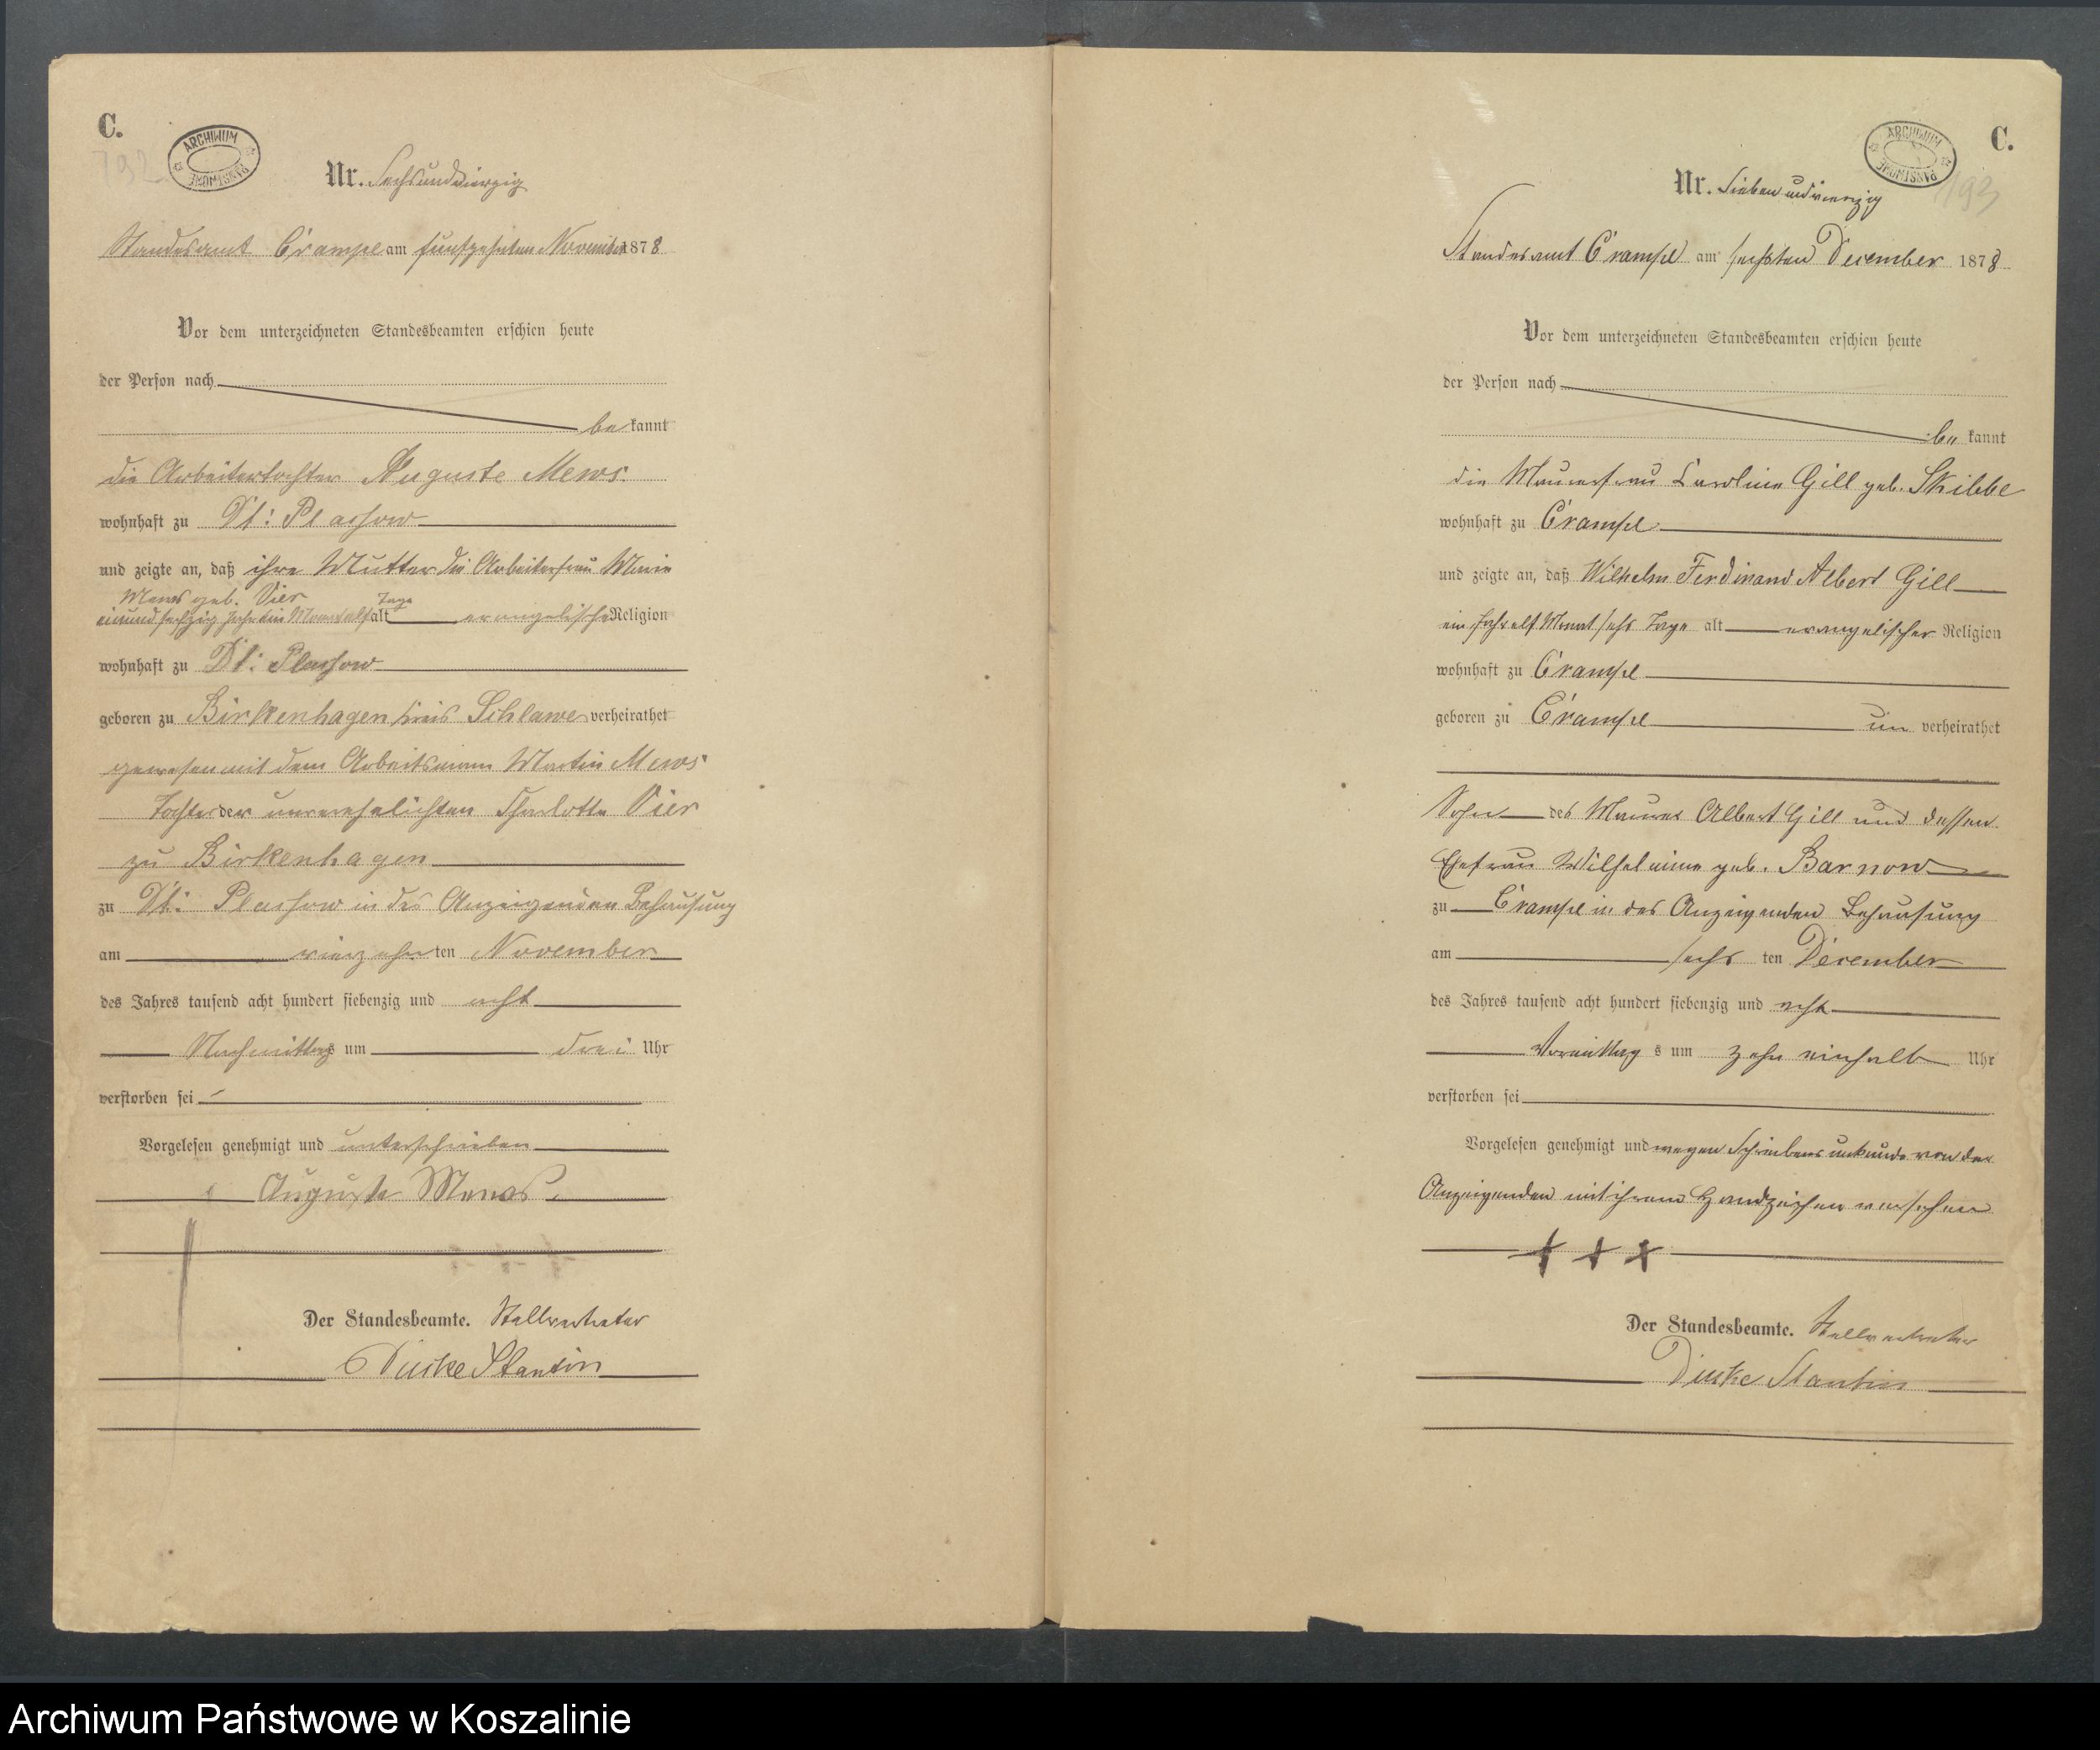 C.
792
ARCHIWUM PAŃSTWOWE
Nr. Sechsundvierzig
Standesamt Crampe am fünfzehnten November 1878
Vor dem unterzeichneten Standesbeamten erschien heute
der Person nach
be kannt
die Arbeitertochter Auguste Mews
wohnhaft zu Dt: Plassow
und zeigte an, daß ihre Mutter die Arbeiterfrau Marie
Mews geb. Vier
einundsechzig Jahr ein Monat elf Tage alt evangelischer Religion
wohnhaft zu Dt: Plassow
geboren zu Birkenhagen Kreis Schlawe verheirathet
gewesen mit dem Arbeitsmann Martin Mews
Tochter der unverehelichten Charlotte Vier
zu Birkenhagen
zu Dt: Plassow in der Anzeigenden Behausung
am vierzehn ten November
des Jahres tausend acht hundert siebenzig und acht
Nachmittags um drei Uhr
verstorben sei
Vorgelesen genehmigt und unterschrieben
Auguste Mews.
Der Standesbeamte. Stellvertreter
C.
ARCHIWUM PAŃSTWOWE
193
Nr. Siebenundvierzig
Standesamt Crampe am sechsten December 1878
Vor dem unterzeichneten Standesbeamten erschien heute
der Person nach
be kannt
die Maurerfrau Caroline Gill geb. Skibbe
wohnhaft zu Crampe
und zeigte an, daß Wilhelm Ferdinand Albert Gill
ein Jahr elf Monat sechs Tage alt evangelischer Religion
wohnhaft zu Crampe
geboren zu Crampe un verheirathet
Sohn des Maurer Albert Gill und dessen
Ehefrau Wilhelmine geb. Barnow
zu Crampe in der Anzeigenden Behausung
am sechs ten December
des Jahres tausend acht hundert siebenzig und acht
Vormittag s um zehn einhalb Uhr
verstorben sei
Vorgelesen genehmigt und wegen Schreibensunkunde von der
Anzeigenden mit ihrem Handzeichen versehen
+ + +
Der Standesbeamte. Stellvertreter
Archiwum Państwowe w Koszalinie